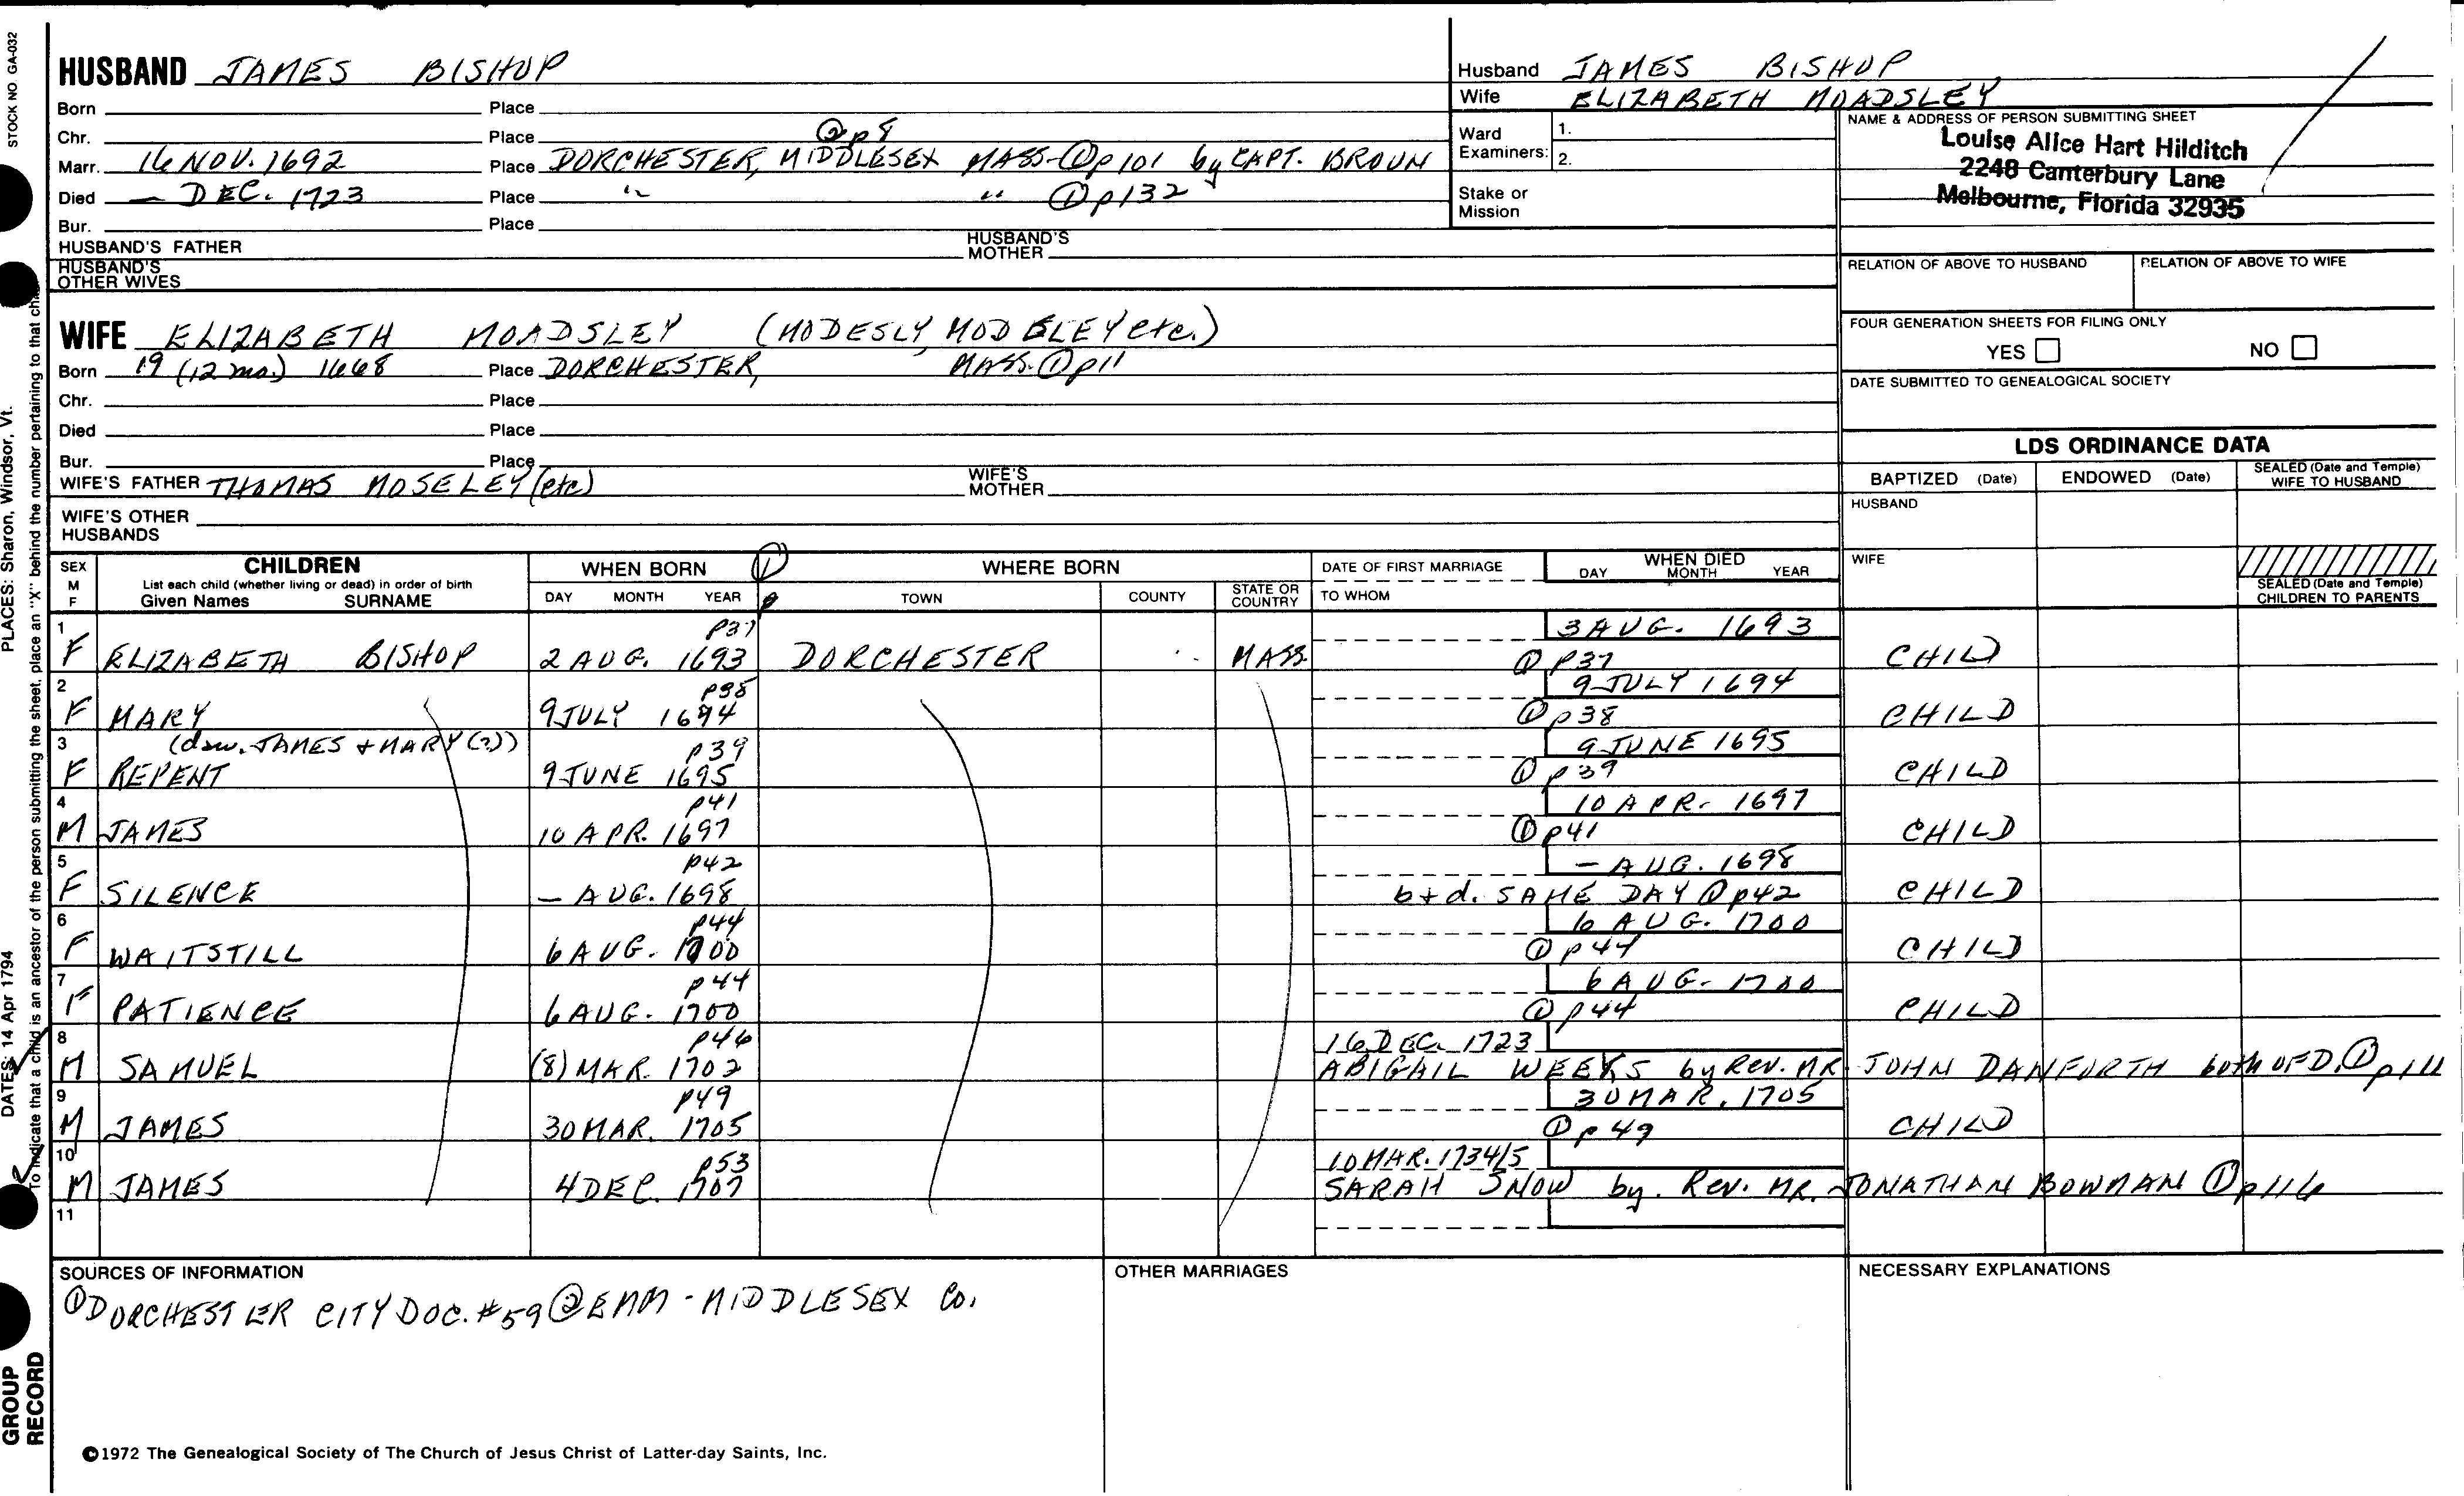 STOCK NO. GA-032
PLACES: Sharon, Windsor, Vt.
DATES: 14 Apr 1794
To indicate that a child is an ancestor of the person submitting the sheet, place an "X" behind the number pertaining to that child.
GROUP RECORD
HUSBAND JAMES BISHOP
Born Place
Chr. Place ② p 8
Marr. 16 NOV. 1692 Place DORCHESTER, MIDDLESEX MASS-① p 101 by CAPT. BROUN
Died — DEC. 1723 Place " " ① p 132
Bur. Place
HUSBAND'S FATHER HUSBAND'S MOTHER
HUSBAND'S OTHER WIVES
Husband JAMES BISHOP
Wife ELIZABETH MOADSLEY
Ward Examiners: 1.
2.
Stake or Mission
NAME & ADDRESS OF PERSON SUBMITTING SHEET
Louise Alice Hart Hilditch
2248 Canterbury Lane
Melbourne, Florida 32935
RELATION OF ABOVE TO HUSBAND RELATION OF ABOVE TO WIFE
FOUR GENERATION SHEETS FOR FILING ONLY
YES NO
DATE SUBMITTED TO GENEALOGICAL SOCIETY
WIFE ELIZABETH MOADSLEY (MODESLY, MODSLEY etc.)
Born 19 (12 mo.) 1668 Place DORCHESTER, MASS. ① p11
Chr. Place
Died Place
Bur. Place
WIFE'S FATHER THOMAS MOSELEY (etc) WIFE'S MOTHER
WIFE'S OTHER HUSBANDS
LDS ORDINANCE DATA
BAPTIZED (Date) ENDOWED (Date) SEALED (Date and Temple) WIFE TO HUSBAND
HUSBAND
WIFE
SEALED (Date and Temple) CHILDREN TO PARENTS
SEX M F CHILDREN WHEN BORN ① WHERE BORN DATE OF FIRST MARRIAGE WHEN DIED
List each child (whether living or dead) in order of birth
Given Names SURNAME DAY MONTH YEAR p TOWN COUNTY STATE OR COUNTRY TO WHOM DAY MONTH YEAR
1 p37 3 AUG. 1693
F ELIZABETH BISHOP 2 AUG. 1693 DORCHESTER MASS. ① p37 CHILD
2 p38 9 JULY 1694
F MARY 9 JULY 1694 ① p38 CHILD
3 (daw. JAMES + MARY (?)) p39 9 JUNE 1695
F REPENT 9 JUNE 1695 ① p39 CHILD
4 p41 10 APR. 1697
M JAMES 10 APR. 1697 ① p41 CHILD
5 p42 — AUG. 1698
F SILENCE — AUG. 1698 b+d. SAME DAY ① p42 CHILD
6 p44 6 AUG. 1700
F WAITSTILL 6 AUG. 1700 ① p44 CHILD
7 p44 6 AUG. 1700
F PATIENCE 6 AUG. 1700 ① p44 CHILD
8 p46 16 DEC. 1723
M SAMUEL (8) MAR. 1702 ABIGAIL WEEKS by Rev. MR. JOHN DANFORTH both OF D. ① p111
9 p49 30 MAR. 1705
M JAMES 30 MAR. 1705 ① p 49 CHILD
10 p53 10 MAR. 1734/5
M JAMES 4 DEC. 1707 SARAH SNOW by. Rev. MR. JONATHAN BOWMAN ① p116
11
SOURCES OF INFORMATION
① DORCHESTER CITY DOC. #59 ② EMM - MIDDLESEX Co.
OTHER MARRIAGES
NECESSARY EXPLANATIONS
©1972 The Genealogical Society of The Church of Jesus Christ of Latter-day Saints, Inc.